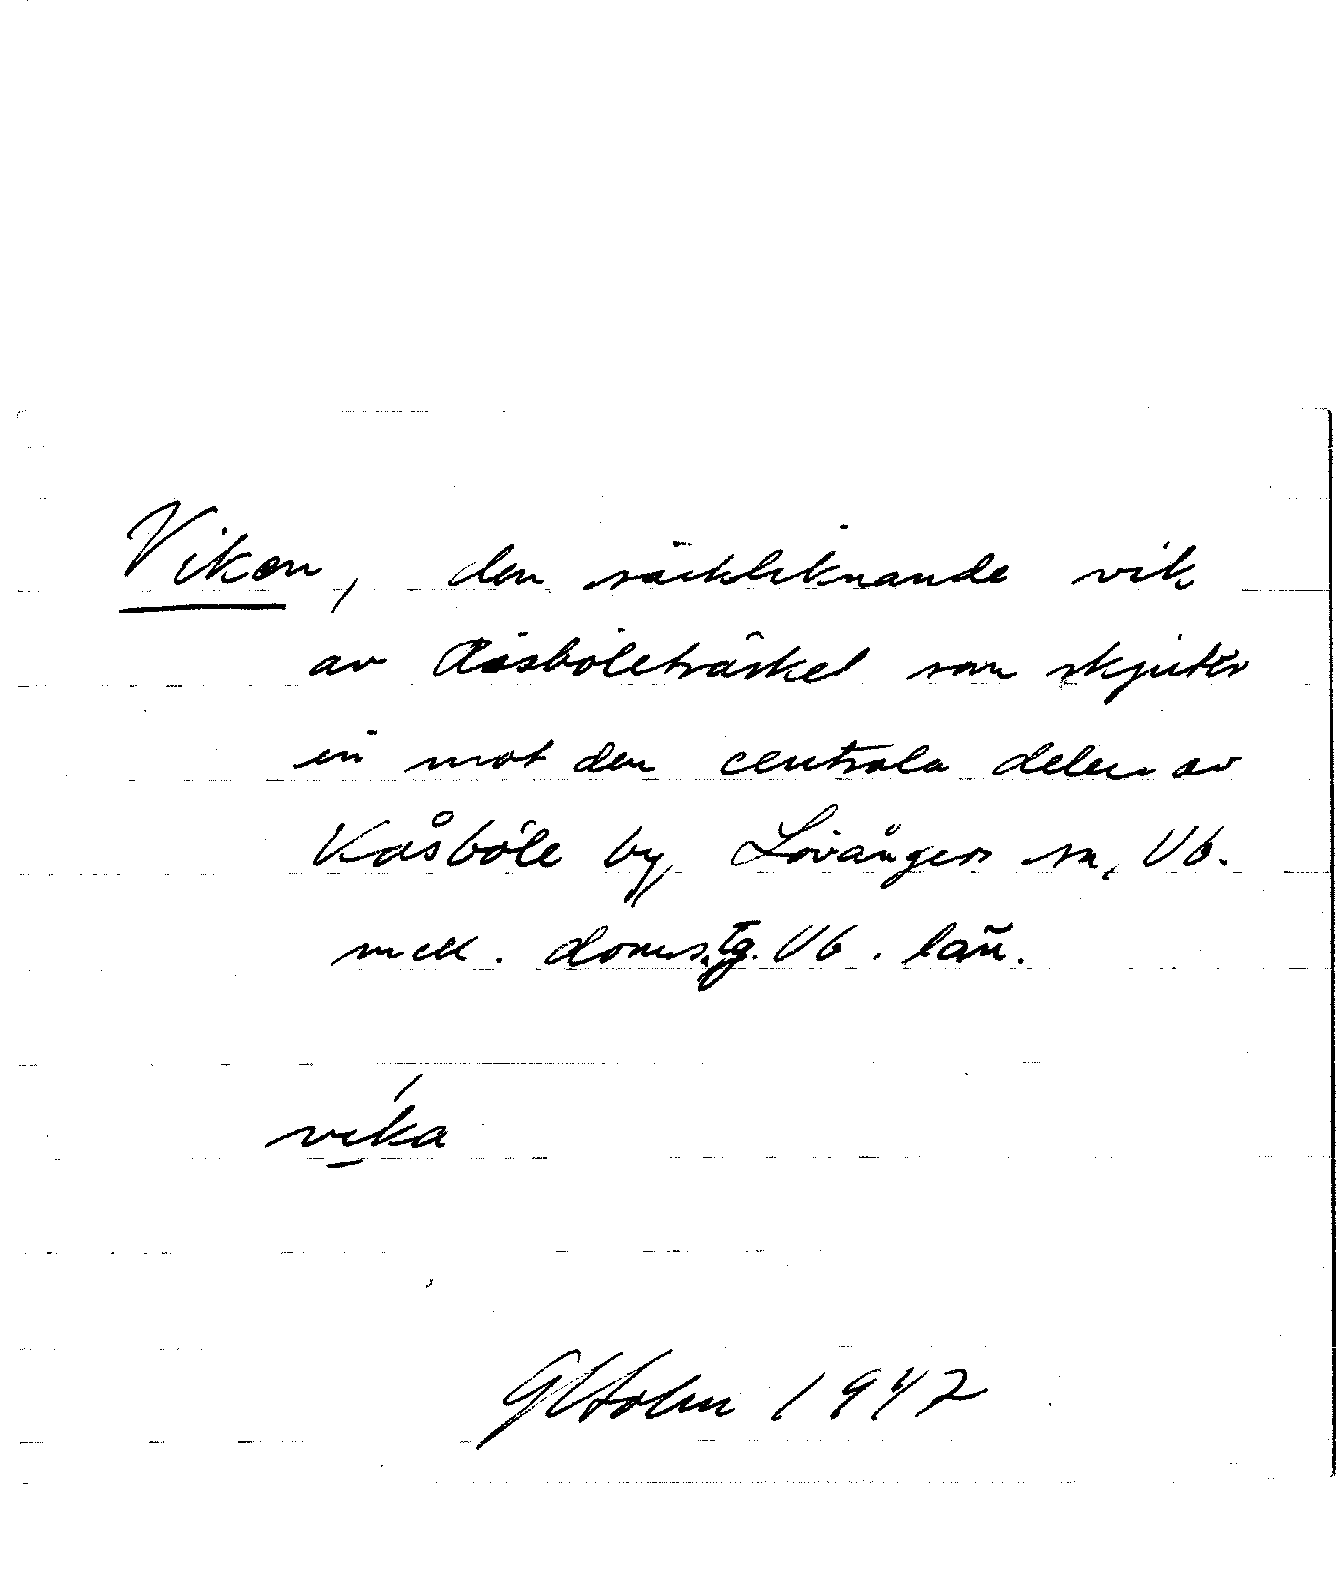 Viken, den säckliknande vik
av Kåsböleträsket som skjuter
in mot den centrala delen av
Kåsböle by, Lövångers sn, Vb.
mell. doms.tg. Vb. län.
vika
Holm 1947